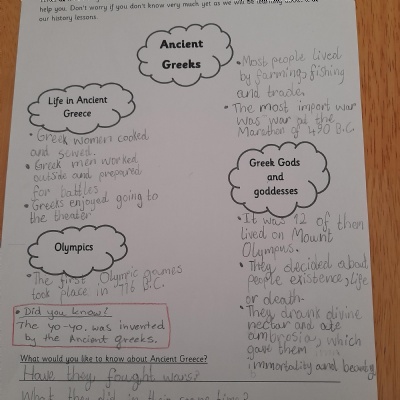 help you. Don't worry if you don't know very much yet as we will be learning
our history lessons.
Ancient
Greeks
• Most people lived
by farming, fishing
and trade.
• The most import war
was "war of the
Marathon of 490 B.C
Life in Ancient
Greece
• Greek women cooked
and served.
• Greek men worked
outside and prepared
for battles
• Greeks enjoyed going to
the theater
Greek Gods
and
goddesses
• It was 12 of them
lived on Mount
Olympous.
• They decided about
people existence, life
or death.
• They drank divine
nectar and ate
ambrosia, which
gave them
immortality and beauty
Olympics
• The first Olympic games
took place in 776 B.C.
• Did you know?
The yo-yo. was invented
by the Ancient greeks.
What would you like to know about Ancient Greece?
Have they fought wars?
What they did in their